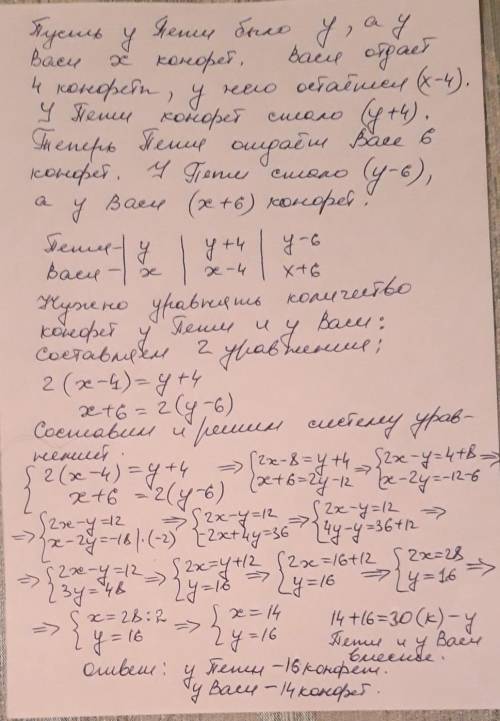 Пусть у Пети было y, а у
Васи x конфет. Вася отдает
4 конфеты, у него остаётся (x-4).
У Пети конфет стало (y+4).
Теперь Петя отдаёт Васе 6
конфет. У Пети стало (y-6),
а у Васи (x+6) конфет.
Петя- | y | y+4 | y-6
Вася- | x | x-4 | x+6
Нужно уравнять количество
конфет у Пети и у Васи:
Составляем 2 уравнения;
2(x-4)=y+4
x+6=2(y-6)
Составим и решим систему урав-
нений.
{2(x-4)=y+4 ⇒ {2x-8=y+4 ⇒ {2x-y=4+8 ⇒
x+6=2(y-6) x+6=2y-12 x-2y=-12-6
⇒ {2x-y=12 ⇒ {2x-y=12 ⇒ {2x-y=12 ⇒
x-2y=-18|·(-2) -2x+4y=36 4y-y=36+12
⇒ {2x-y=12 ⇒ {2x=y+12 ⇒ {2x=16+12 ⇒ {2x=28
3y=48 y=16 y=16 y=16 ⇒
⇒ {x=28:2 ⇒ {x=14 14+16=30(к)-у
y=16 y=16 Пети и у Васи
вместе.
Ответ: у Пети -16 конфет.
у Васи -14 конфет.